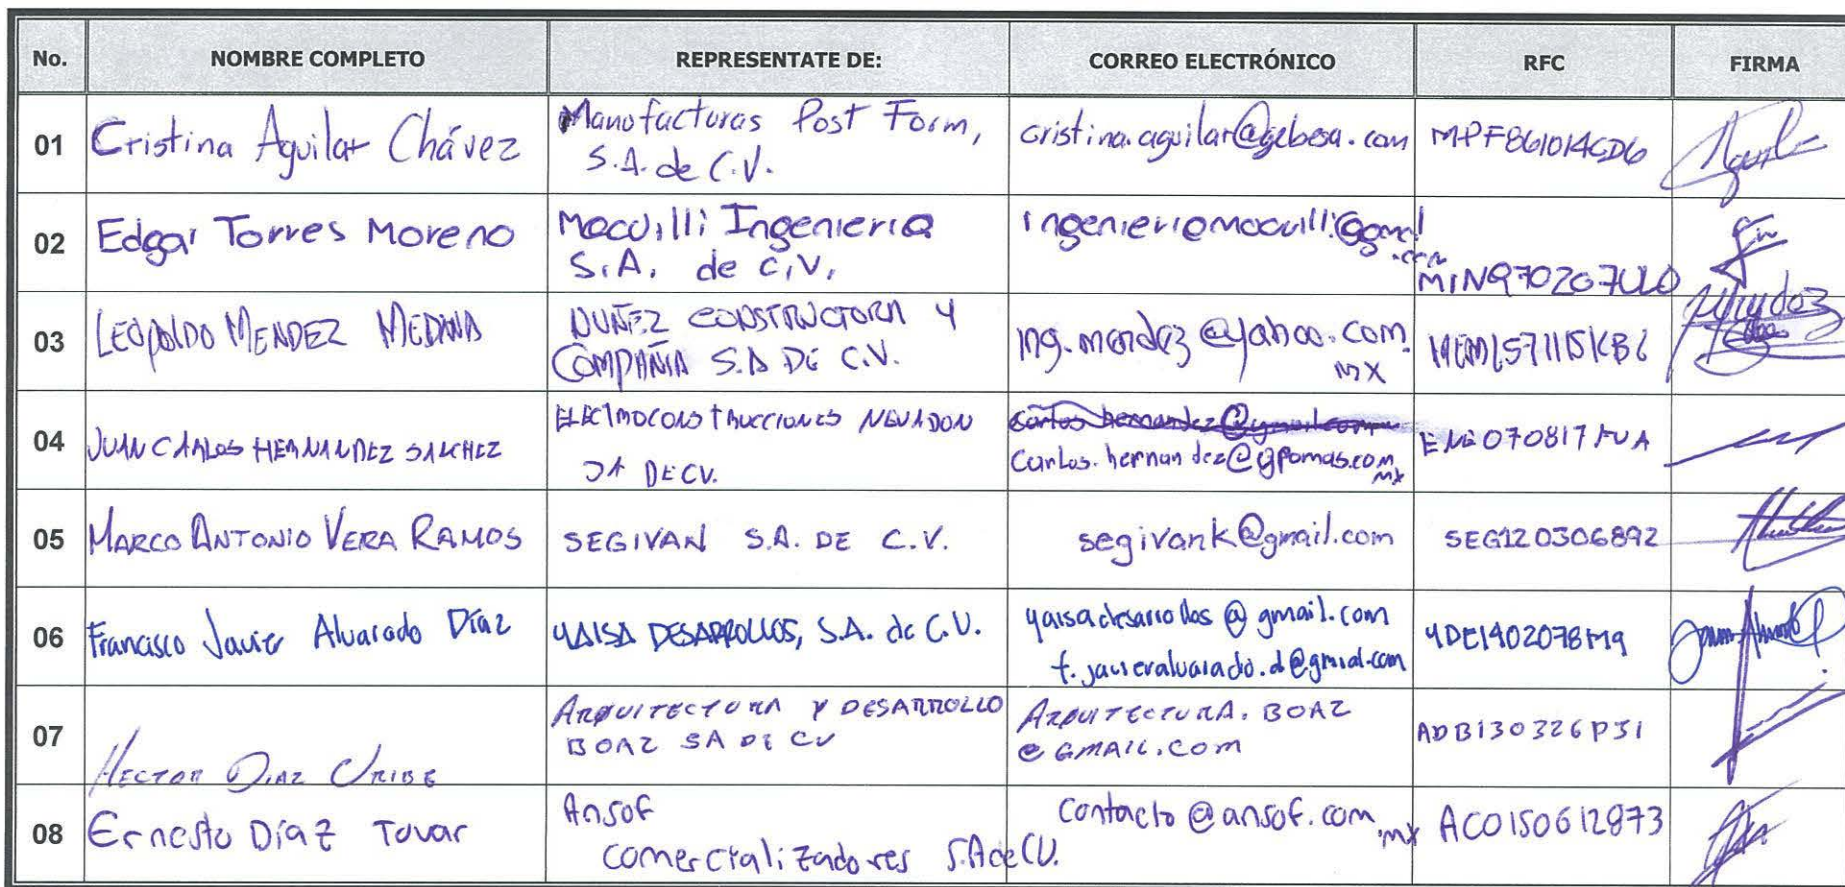 No. NOMBRE COMPLETO REPRESENTATE DE: CORREO ELECTRÓNICO RFC FIRMA
01 Cristina Aguilar Chávez Manufacturas Post Form, S.A. de C.V. cristina.aguilar@gebesa.com MPF861014CD6
02 Edgar Torres Moreno Macuilli Ingenieria S.A. de C.V. ingenieriamacuilli@gmail.com MIN970207UL0
03 LEOPOLDO MENDEZ MEDINA NUÑEZ CONSTRUCTORA Y COMPAÑIA S.A DE C.V. ing.mendez@yahoo.com.mx
04 JUAN CARLOS HERNANDEZ SANCHEZ ELECTROCONSTRUCCIONES NEVADON SA DE CV. carlos.hernandez@gmail.com
Carlos.hernandez@gpomas.com.mx
05 MARCO ANTONIO VERA RAMOS SEGIVAN S.A. DE C.V. segivank@gmail.com SEG120306892
06 Francisco Javier Alvarado Díaz YAISA DESARROLLOS, S.A. de C.V. yaisadesarrollos@gmail.com
f.javieralvarado.d@gmial.com YDE1402078M9
07 HECTOR DIAZ URIBE ARQUITECTURA Y DESARROLLO BOAZ SA DE CV ARQUITECTURA.BOAZ@GMAIL.COM
08 Ernesto Díaz Tovar Ansof comercializadores S.A de C.V. contacto@ansof.com.mx ACO150612873